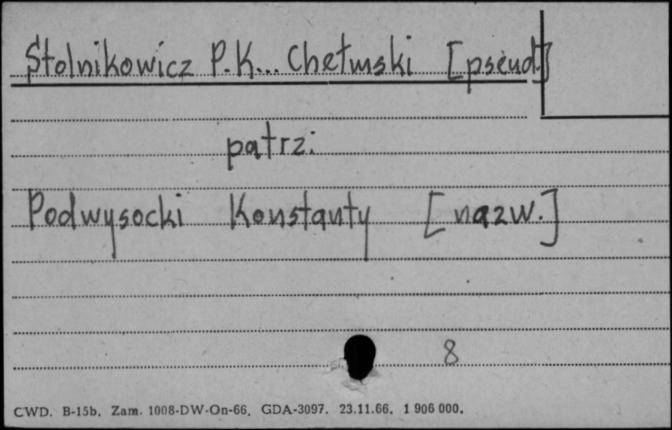 Stolnikowicz P.K... Chełmski [pseud.]
patrz:
Podwysocki Konstanty [nazw.]
8
CWD. B-15b. Zam. 1008-DW-On-66. GDA-3097. 23.11.66. 1 906 000.